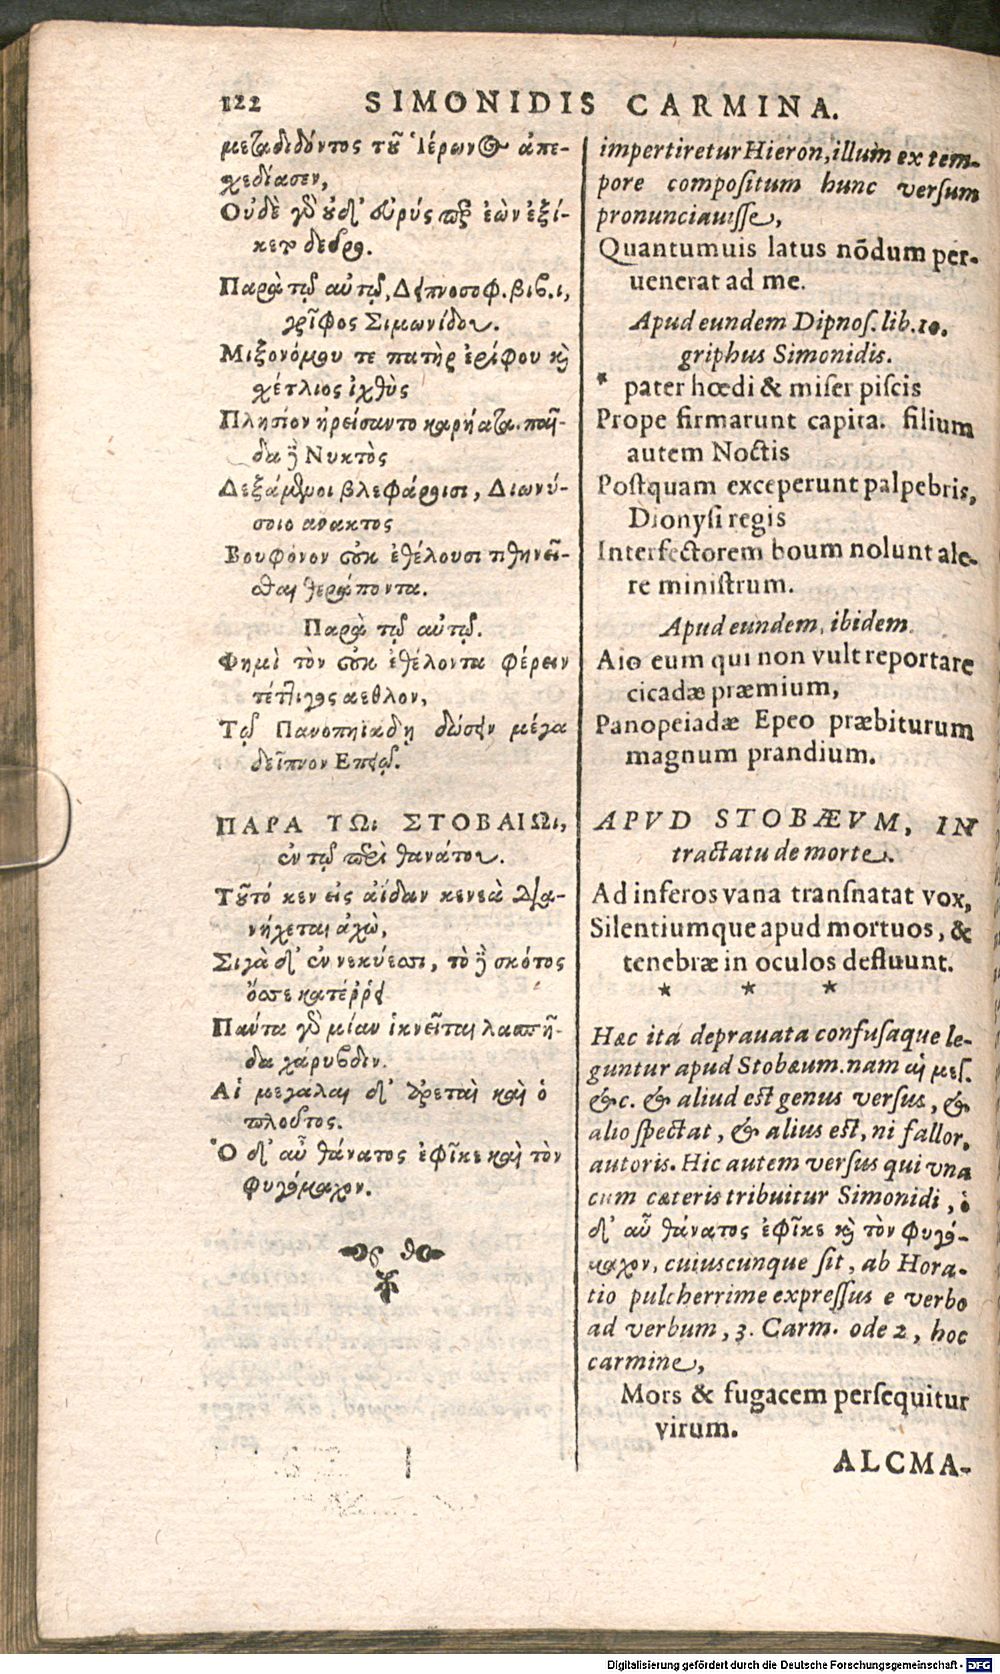 122 SIMONIDIS CARMINA.
μεταδιδόντος τοῦ Ἱέρωνος ἀπε-
χεδίασεν,
Οὐδὲ γὰρ οὐδ' εὐρύς περ ἐὼν ἐξί-
κετο δεῦρο.
Παρὰ τῷ αὐτῷ, Δειπνοσοφ. βιβ. ι,
γρῖφος Σιμωνίδου.
Μιξονόμου τε πατὴρ ἐρίφου καὶ
χέτλιος ἰχθὺς
Πλησίον ἠρείσαντο καρήατα. παῖ-
δα δὲ Νυκτὸς
Δεξάμενοι βλεφάροισι, Διωνύ-
σοιο ανακτος
Βουφόνον οὐκ ἐθέλουσι τιθηνεῖ-
σθαι θεράποντα.
Παρὰ τῷ αὐτῷ.
Φημὶ τὸν οὐκ ἐθέλοντα φέρειν
τέττιγος αεθλον,
Τῷ Πανοπηϊάδῃ δώσειν μέγα
δεῖπνον Επειῷ.
ΠΑΡΑ ΤΩι ΣΤΟΒΑΙΩι,
ἐν τῷ περὶ θανάτου.
Τοῦτό κεν εἰς ἀΐδαν κενεὰ δια-
νήχεται ἀχὼ,
Σιγὰ δ' ἐν νεκύεσσι, τὸ δὲ σκότος
ὄσσε κατέρρει
Πάντα γὰρ μίαν ἱκνεῖται λασπῆ-
δα χάρυβδιν.
Αἱ μεγαλαι δ' ἀρεταὶ καὶ ὁ
πλοῦτος.
Ὁ δ' αὖ θάνατος ἐφῖκε καὶ τὸν
φυγόμαχον.
impertiretur Hieron, illum ex tem-
pore compositum hunc versum
pronunciauisse,
Quantumuis latus nõdum per-
uenerat ad me.
Apud eundem Dipnos. lib. 10.
griphus Simonidis.
* pater hœdi & miser piscis
Prope firmarunt capita. filium
autem Noctis
Postquam exceperunt palpebris,
Dionysi regis
Interfectorem boum nolunt ale-
re ministrum.
Apud eundem, ibidem.
Aio eum qui non vult reportare
cicadæ præmium,
Panopeiadæ Epeo præbiturum
magnum prandium.
APVD STOBÆVM, IN
tractatu de morte.
Ad inferos vana transnatat vox,
Silentiumque apud mortuos, &
tenebræ in oculos defluunt.
* * *
Hæc ita deprauata confusaque le-
guntur apud Stobæum. nam αἱ μεγ.
&c. & aliud est genus versus, &
alio spectat, & alius est, ni fallor,
autoris. Hic autem versus qui vna
cum cæteris tribuitur Simonidi, ὁ
δ' αὖ θάνατος ἐφῖκε καὶ τὸν φυγό-
μαχον, cuiuscunque sit, ab Hora-
tio pulcherrime expressus e verbo
ad verbum, 3. Carm. ode 2, hoc
carmine,
Mors & fugacem persequitur
virum.
ALCMA-
Digitalisierung gefördert durch die Deutsche Forschungsgemeinschaft - DFG